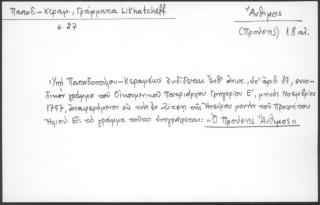 Παπαδ.-Κεραμ., Γράμματα Likhatcheff
σ. 27
Ἄνθιμος
(Προύσης) 18 αἰ.
Ὑπὸ Παπαδοπούλου-Κεραμέως ἐκδίδεται ἔνθ' ἀνωτ., ὑπ' ἀριθ. 19, συνο-
δικὸν γράμμα τοῦ Οἰκουμενικοῦ Πατριάρχου Γρηγορίου Ε', μηνὸς Νοεμβρίου
1797, ἀναφερόμενον εἰς τὴν ἐν Ζίτσῃ τῆς Ἠπείρου μονὴν τοῦ Προφήτου
Ἠλιού. Εἰς τὸ γράμμα τοῦτο ὑπογράφεται: «Ὁ Προύσης Ἄνθιμος»